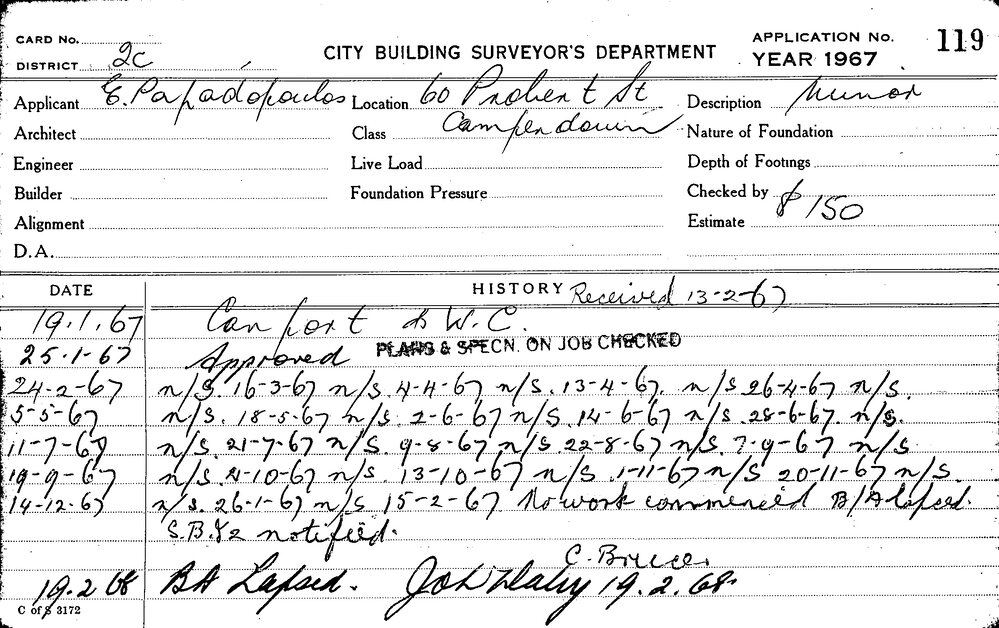 CARD No.
DISTRICT 2c
CITY BUILDING SURVEYOR'S DEPARTMENT
APPLICATION No. 119
YEAR 1967
Applicant E. Papadopoulos Location 60 Probert St Description Minor
Architect Class Camperdown Nature of Foundation
Engineer Live Load Depth of Footings
Builder Foundation Pressure Checked by
Alignment Estimate $150
D.A.
DATE HISTORY Received 13-2-67
19.1.67 Carport & W.C.
25.1-67 Approved PLANS & SPECN. ON JOB CHECKED
24-2-67 n/S. 16-3-67 n/S. 4-4-67 n/S. 13-4-67. n/S 26-4-67 n/S.
5-5-67 n/S. 18-5-67 n/S. 2-6-67 n/S. 14-6-67 n/S. 28-6-67. n/S.
11-7-67 n/S. 21-7-67 n/S. 9-8-67 n/S. 22-8-67 n/S. 7-9-67 n/S
19-9-67 n/S. 4-10-67 n/S. 13-10-67 n/S. 1-11-67 n/S 20-11-67 n/S.
14-12-67 n/s. 26-1-67 n/s 15-2-67 No work commenced B/A lapsed.
notified.
C. Bruce.
19.2.68 BA Lapsed. 19.2.68.
C of S 3172